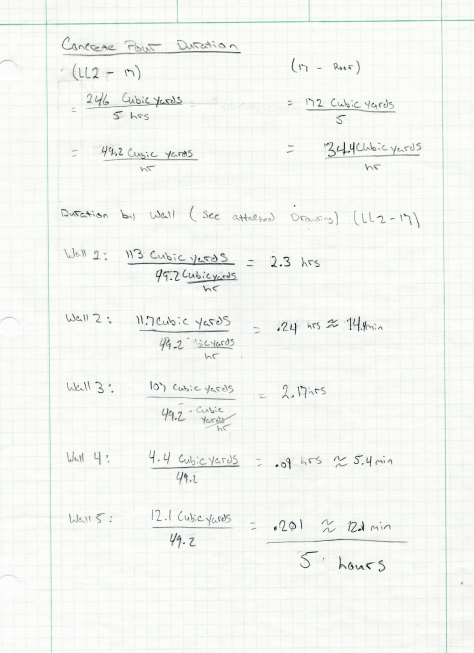 Concrete Pour Duration
(LL2 - 17) (17 - Roof)
= 246 Cubic yards / 5 hrs = 172 Cubic yards / 5
= 49.2 Cubic yards / hr = 34.4 Cubic yards / hr
Duration by Wall (See attached Drawing) (LL2-17)
Wall 1: 113 Cubic yards / 49.2 Cubic yards / hr = 2.3 hrs
Wall 2: 11.7 Cubic yards / 49.2 Cubic yards / hr = .24 hrs ≈ 14.4min
Wall 3: 107 Cubic yards / 49.2 - Cubic yards / hr = 2.17 hrs
Wall 4: 4.4 Cubic yards / 49.2 = .09 hrs ≈ 5.4 min
Wall 5: 12.1 Cubic yards / 49.2 = .201 ≈ 12.1 min
5 hours